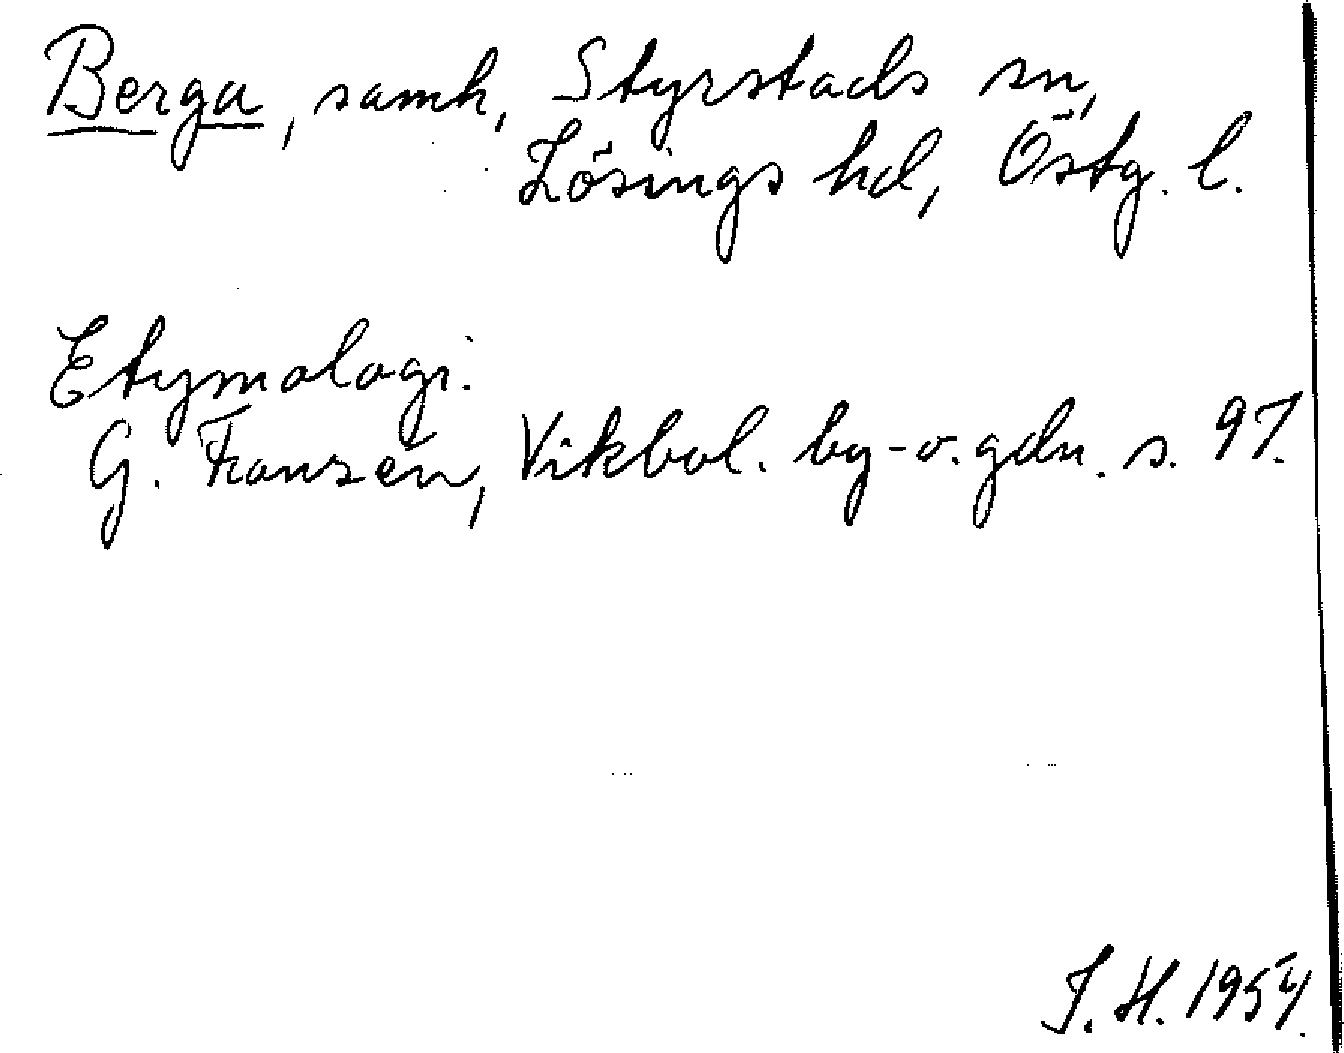 Berga, samh, Styrstads sn,
Lösings hd, Östg. l.
Etymologi:
G. Franzén, Vikbol. by- o. gdn. s. 97.
J. H. 1954.